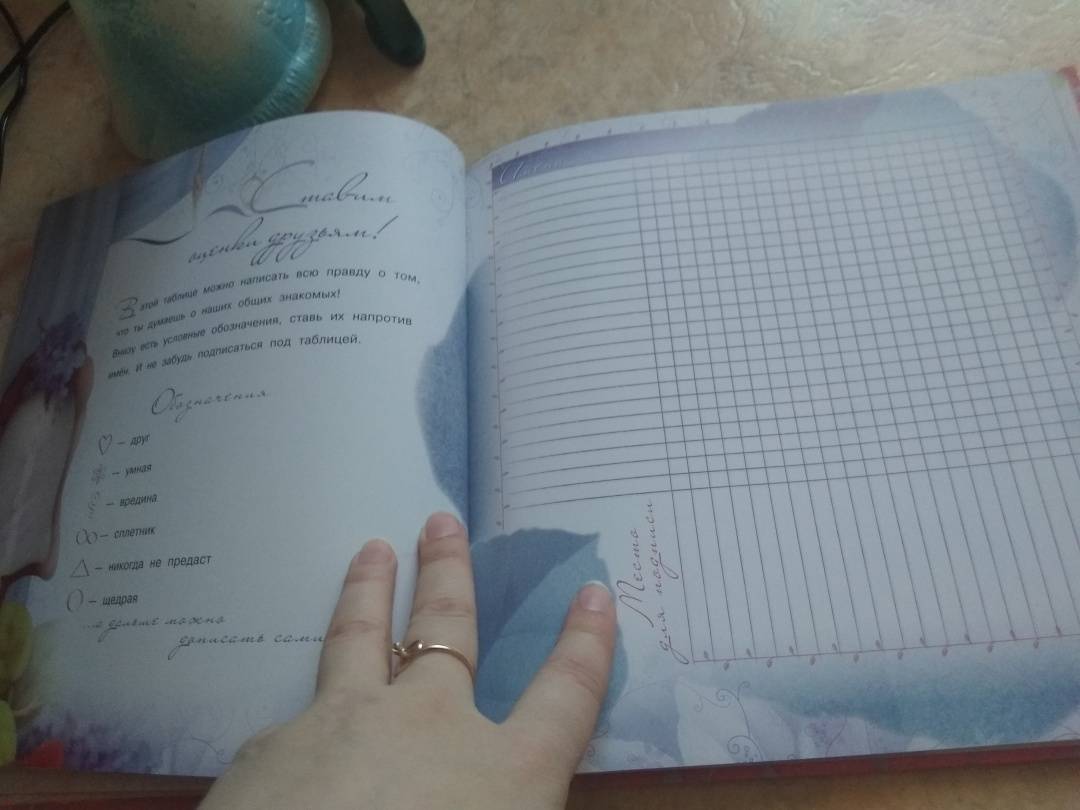 Ставим
оценки друзьям!
В этой таблице можно написать всю правду о том,
что ты думаешь о наших общих знакомых!
Внизу есть условные обозначения, ставь их напротив
имён. И не забудь подписаться под таблицей.
Обозначения
– друг
– умная
– вредина
– сплетник
– никогда не предаст
– щедрая
...а дальше можно
дописать сами
Место
для подписи